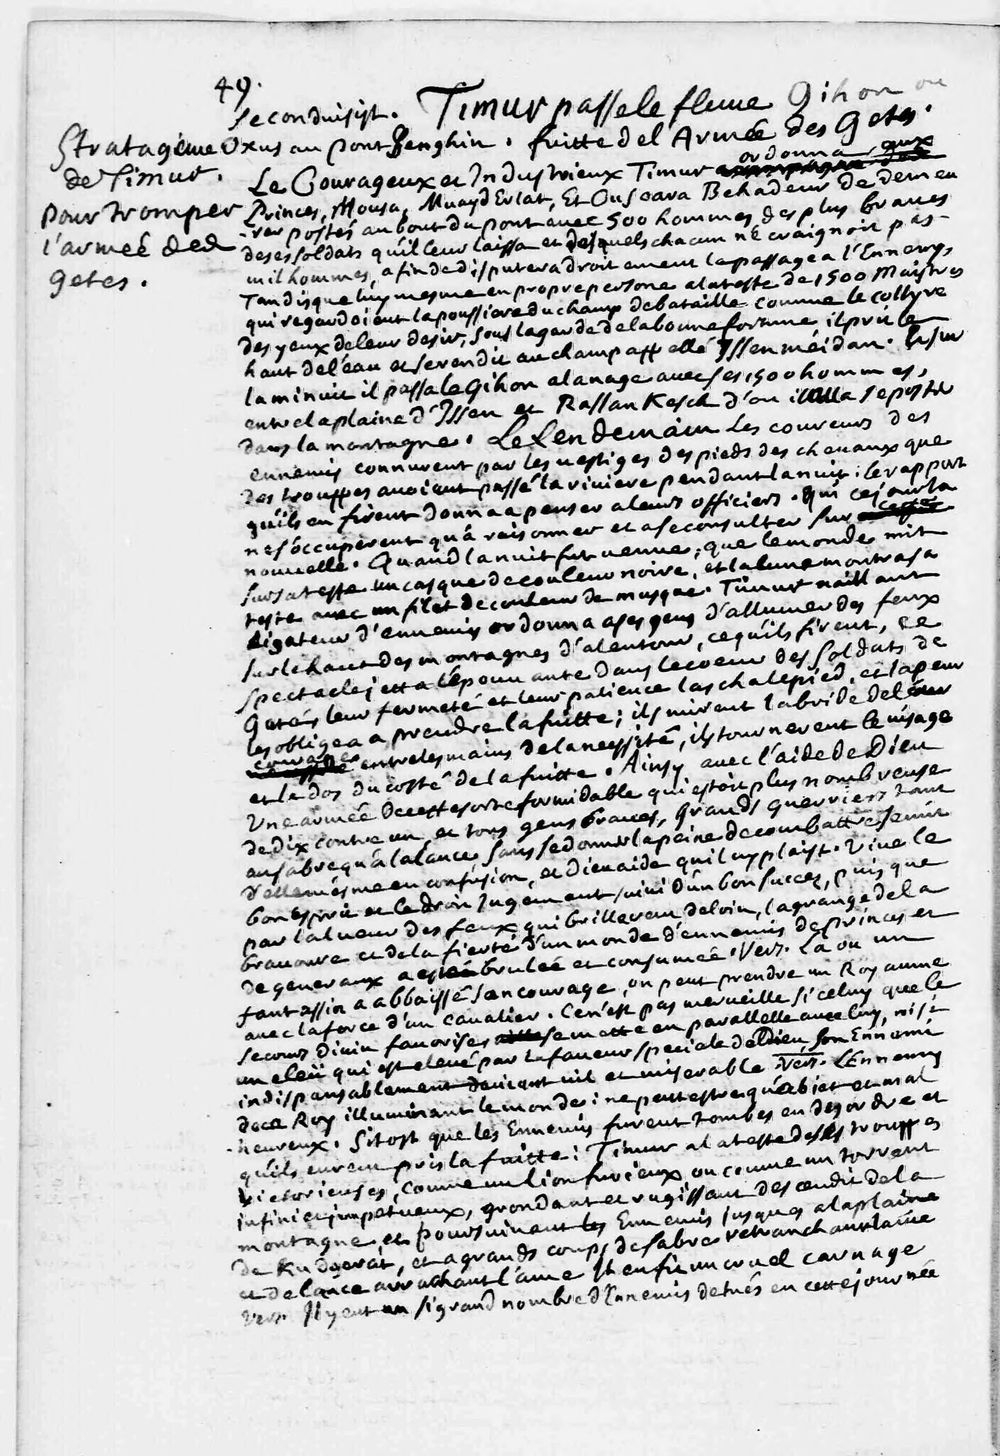 49.
se conduisist. Timur passe le fleuve Gihon ou
Stratagême
de Timur.
pour tromper
l'armée des
getes.
Oxus au pont Senghin. fuitte del'Armée des Getes.
Le Courageux et Industrieux Timur ordonna aux
Princes, Mousa, Muayd Erlat, Et Ouscara Behadeur de demeu
-rer postés au bout du pont avec 500 hommes des plus braves
de ses soldats qu'il leur laissa et desquels chacun ne craignoit pas
mil hommes, afin de disputer adroitement le passage a l'Ennemy,
Tandisque luy mesme en propre persone a la teste de 1500 Maistres
qui regardoient la poussiere du champ de bataille comme le collyre
des yeux de leur desir, sous la garde de la bonne fortune il prit le
haut de l'éau et se rendit au champ appellé Issen méidan. Et sur
la minuit il passa le Gihon a la nage avec ses 1500 hommes,
entre la plaine d'Issen et Kassan Kesch d'ou il alla se poster
dans la montagne. Le Lendemain les coureurs des
ennemis connurent par les vestiges des pieds des chevaux que
des trouppes avoient passé la riviere pendant la nuit: le rapport
qu'ils en firent donna a penser a leurs officiers. qui ce jour la
ne s'occuperent qu'á raisonner et a se consulter sur cette
nouvelle. Quand la nuit fut venue, que le monde mit
sur sa teste un casque de couleur noire, et la lune montra sa
teste avec un filet de couleur de musque. Timur vaillant
ligateur d'ennemis ordonna a ses gens d'allumer des feux
sur le haut des montagnes d'alentour, ce qu'ils firent, ce
spectacle jetta l'épouvante dans le coeur des soldats de
Getés leur fermeté et leur patience lascha le pied, et la peur
les obligea a prendre la fuitte; ils mirent la bride de leur
courage entre les mains de la necessité, ils tournerent le visage
et le dos du costé de la fuitte. Ainsy avec l'aide de Dieu
Une armée de cette sorte formidable qui estoit plus nombreuse
de dix contre un, et tous gens braves, grands guerriers tant
au sabre qu'á la lance, sans se donner la peine de combattre se mit
d'elle mesme en confusion, et Dieu aide qui luy plaist. Vive le
bon esprit et le droit Jugement suivi d'un bon succez, puis que
par la lueur des feux qui brillerent de loin, la grange de la
bravoure et de la fierté d'un monde d'ennemis de princes et
de generaux a esté brulée et consumée. Vers. La ou un
fantassin a abbaissé son courage, on peut prendre un Royaume
avec la force d'un cavalier. Ce n'est pas merveille si celuy que le
secours divin favorise se mette en parallelle avec luy, ni si
un eleu qui est elevé par la faveur speciale de Dieu son Ennemi
indispensablement devient vil et miserable. Vers. L'Ennemy
de ce Roy illuminant le monde, ne peut estre qu'abjet et mal
-heureux. Sitost que les Ennemis furent tombés en desordre et
qu'ils eurent pris la fuitte: Timur a la teste de ses trouppes
victorieuses, comme un lion furieux ou comme un torrent
infini et impetueux, grondant et rugissant descendit de la
montagne et poursuivent les Ennemis jusques a la plaine
de Kudgerat, et a grands coups de sabre retranchant la vie
et de lance arrachant l'ame Il en fit un cruel carnage
Vers. Il y eut un si grand nombre d'Ennemis de tués en cette journée